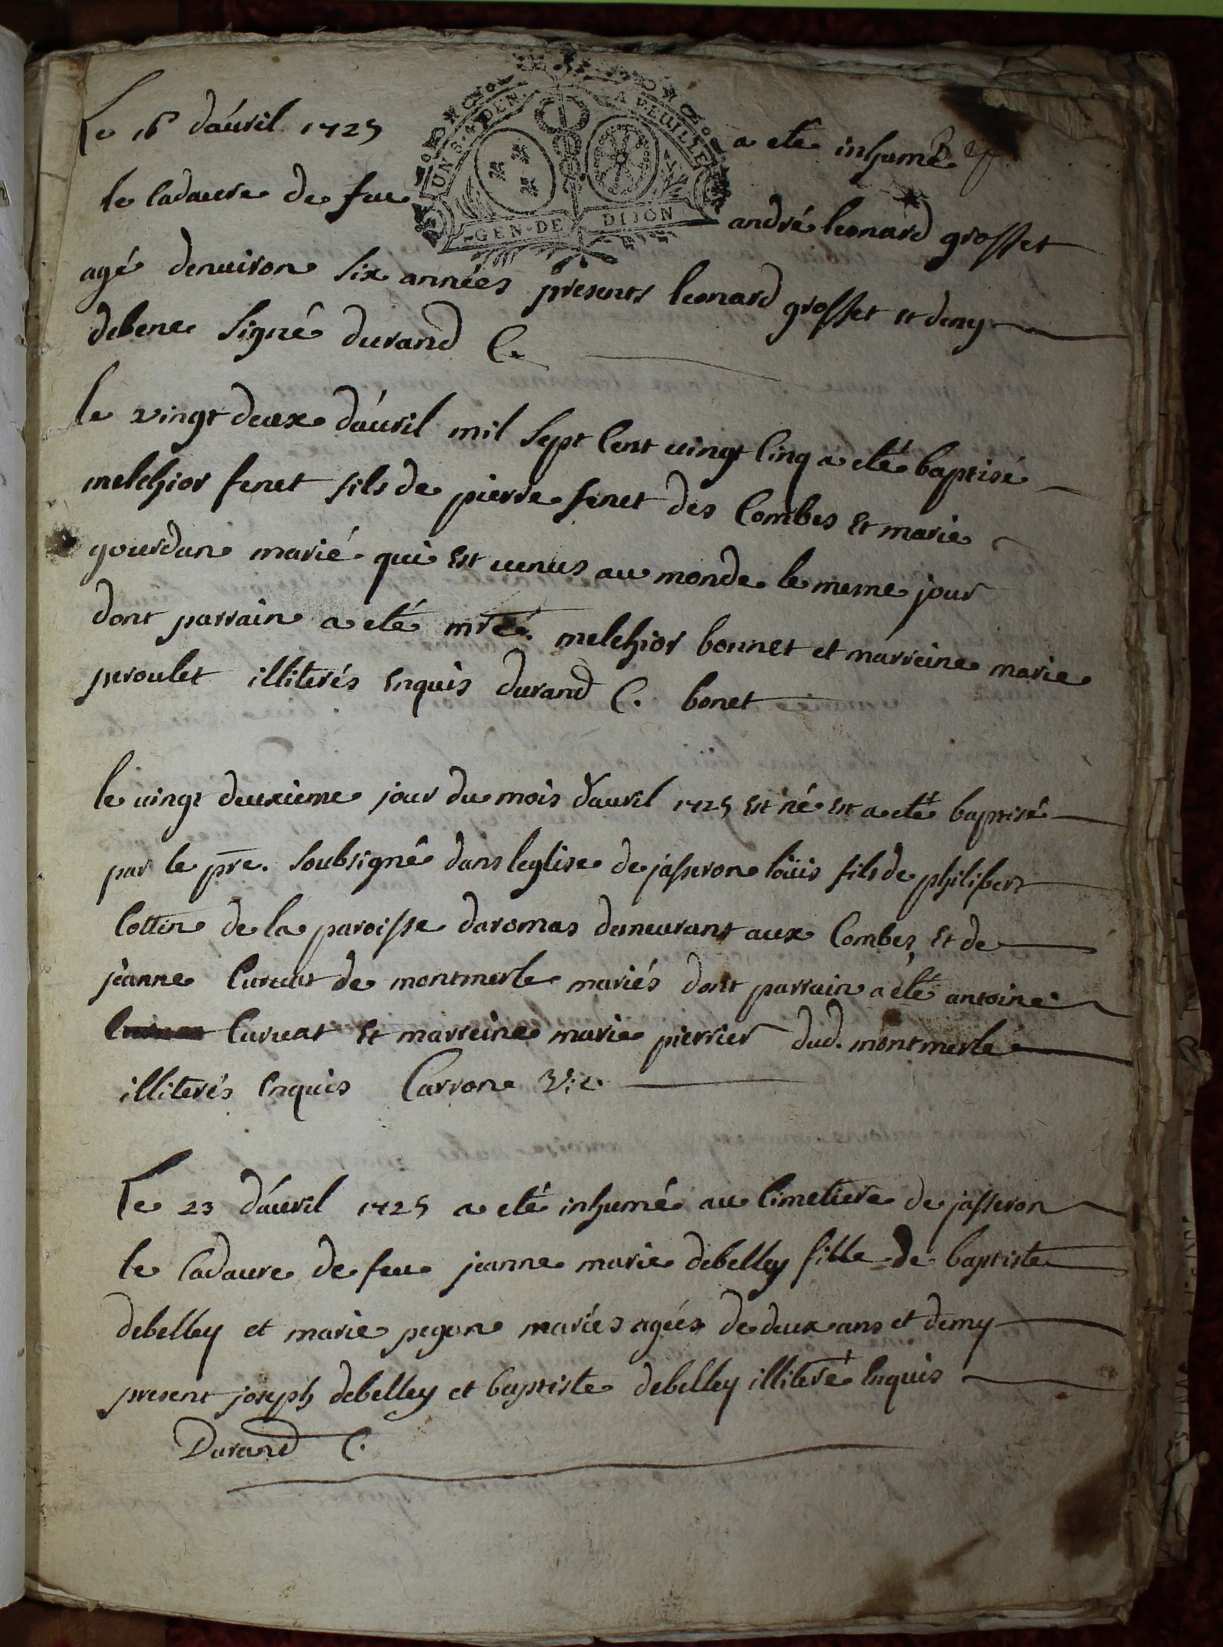 UN S. 4 DEN. LA FEUILLE
GEN. DE DIJON
Le 16 d'auril 1725 a eté inhumé
le Cadaure de feu andré leonard grosset
agé denuiron six années presents leonard grosset et deny
debene signé durand C.
le vingt deux d'auril mil sept Cent uingt Cinq a eté baptisé
melchior fenet fils de pierre fenet des Combes Et marie
gourdan marié qui Est uenus au monde le meme jour
dont parrain a eté melchior bonnet et marreine marie
peroulet illiterés Enquis durand C. bonet
le uingt deuxieme jour du mois d'auril 1725 Est né Et a eté baptisé
par le pre. soubsigné dans leglise de jasseron loüis fils de philibert
Cottin de la paroisse daromas demeurant aux Combes, Et de
jeanne Curuat de montmerle mariés dont parrain a eté antoine
Curuat Et marreine marie pierrier dud. montmerle
illiterés Enquis Carron Vic.
Le 23 d'auril 1725 a eté inhumé au Cimetiere de jasseron
le Cadaure de feu jeanne marie debelley fille de baptiste
debelley et marie pegon mariés agées de deux ans et demy
present joseph debelley et baptiste debelley illiteré Enquis
Durand C.